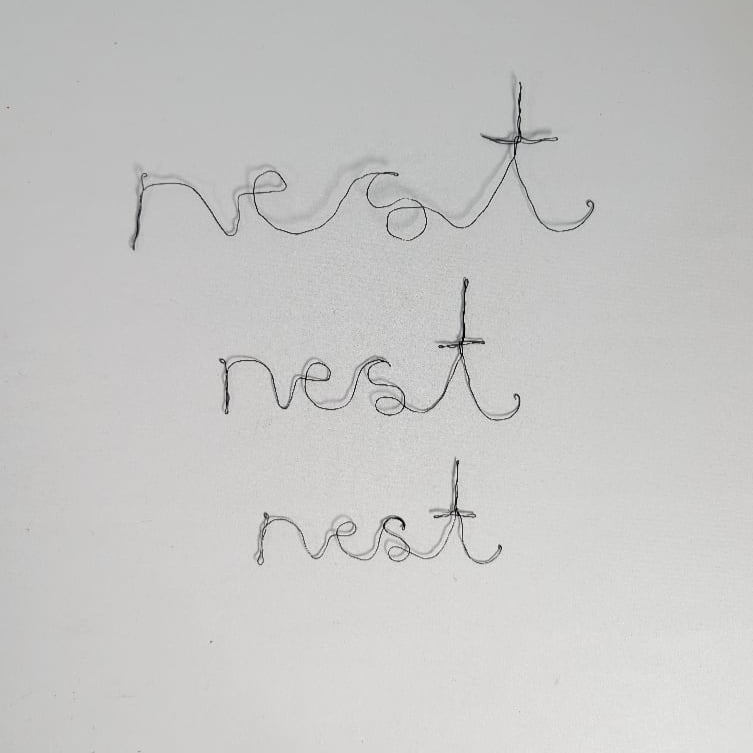 nest
nest
nest